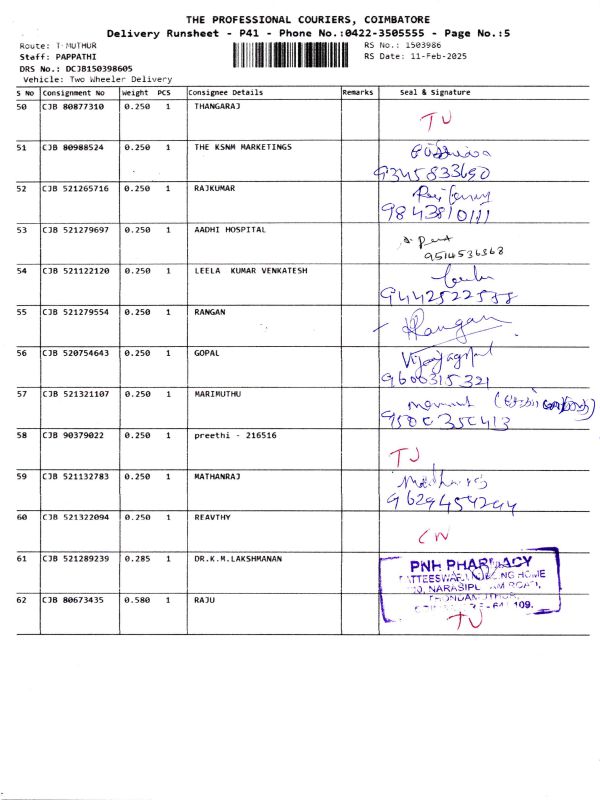 THE PROFESSIONAL COURIERS, COIMBATORE
Delivery Runsheet - P41 - Phone No.:0422-3505555 - Page No.:5
Route: T-MUTHUR
RS No.: 1503986
Staff: PAPPATHI
RS Date: 11-Feb-2025
DRS No.: DCJB150398605
Vehicle: Two Wheeler Delivery
S No Consignment No Weight PCS Consignee Details Remarks Seal & Signature
50 CJB 80877310 0.250 1 THANGARAJ
51 CJB 80988524 0.250 1 THE KSNM MARKETINGS
9345833690
52 CJB 521265716 0.250 1 RAJKUMAR
9843810111
53 CJB 521279697 0.250 1 AADHI HOSPITAL
9514536368
54 CJB 521122120 0.250 1 LEELA KUMAR VENKATESH
9442522538
55 CJB 521279554 0.250 1 RANGAN Rangan
56 CJB 520754643 0.250 1 GOPAL Vijayagopal
9600315321
57 CJB 521321107 0.250 1 MARIMUTHU
58 CJB 90379022 0.250 1 preethi - 216516
59 CJB 521132783 0.250 1 MATHANRAJ
9629454244
60 CJB 521322094 0.250 1 REAVTHY
61 CJB 521289239 0.285 1 DR.K.M.LAKSHMANAN
PNH PHARMACY
62 CJB 80673435 0.580 1 RAJU